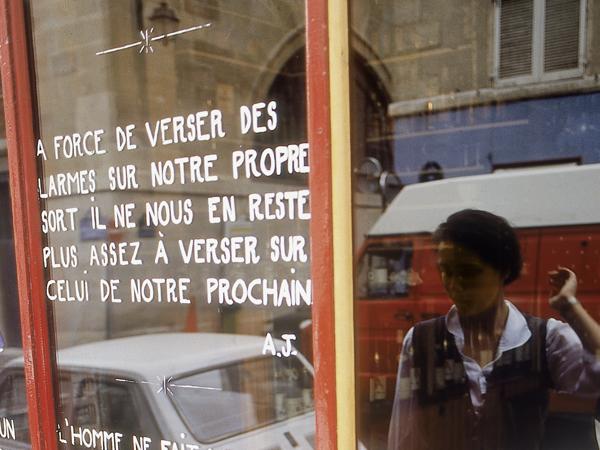 A FORCE DE VERSER DES
LARMES SUR NOTRE PROPRE
SORT iL NE NOUS EN RESTE
PLUS ASSEZ À VERSER SUR
CELUi DE NOTRE PROCHAIN
A.J.
UN
L'HOMME NE FAIT